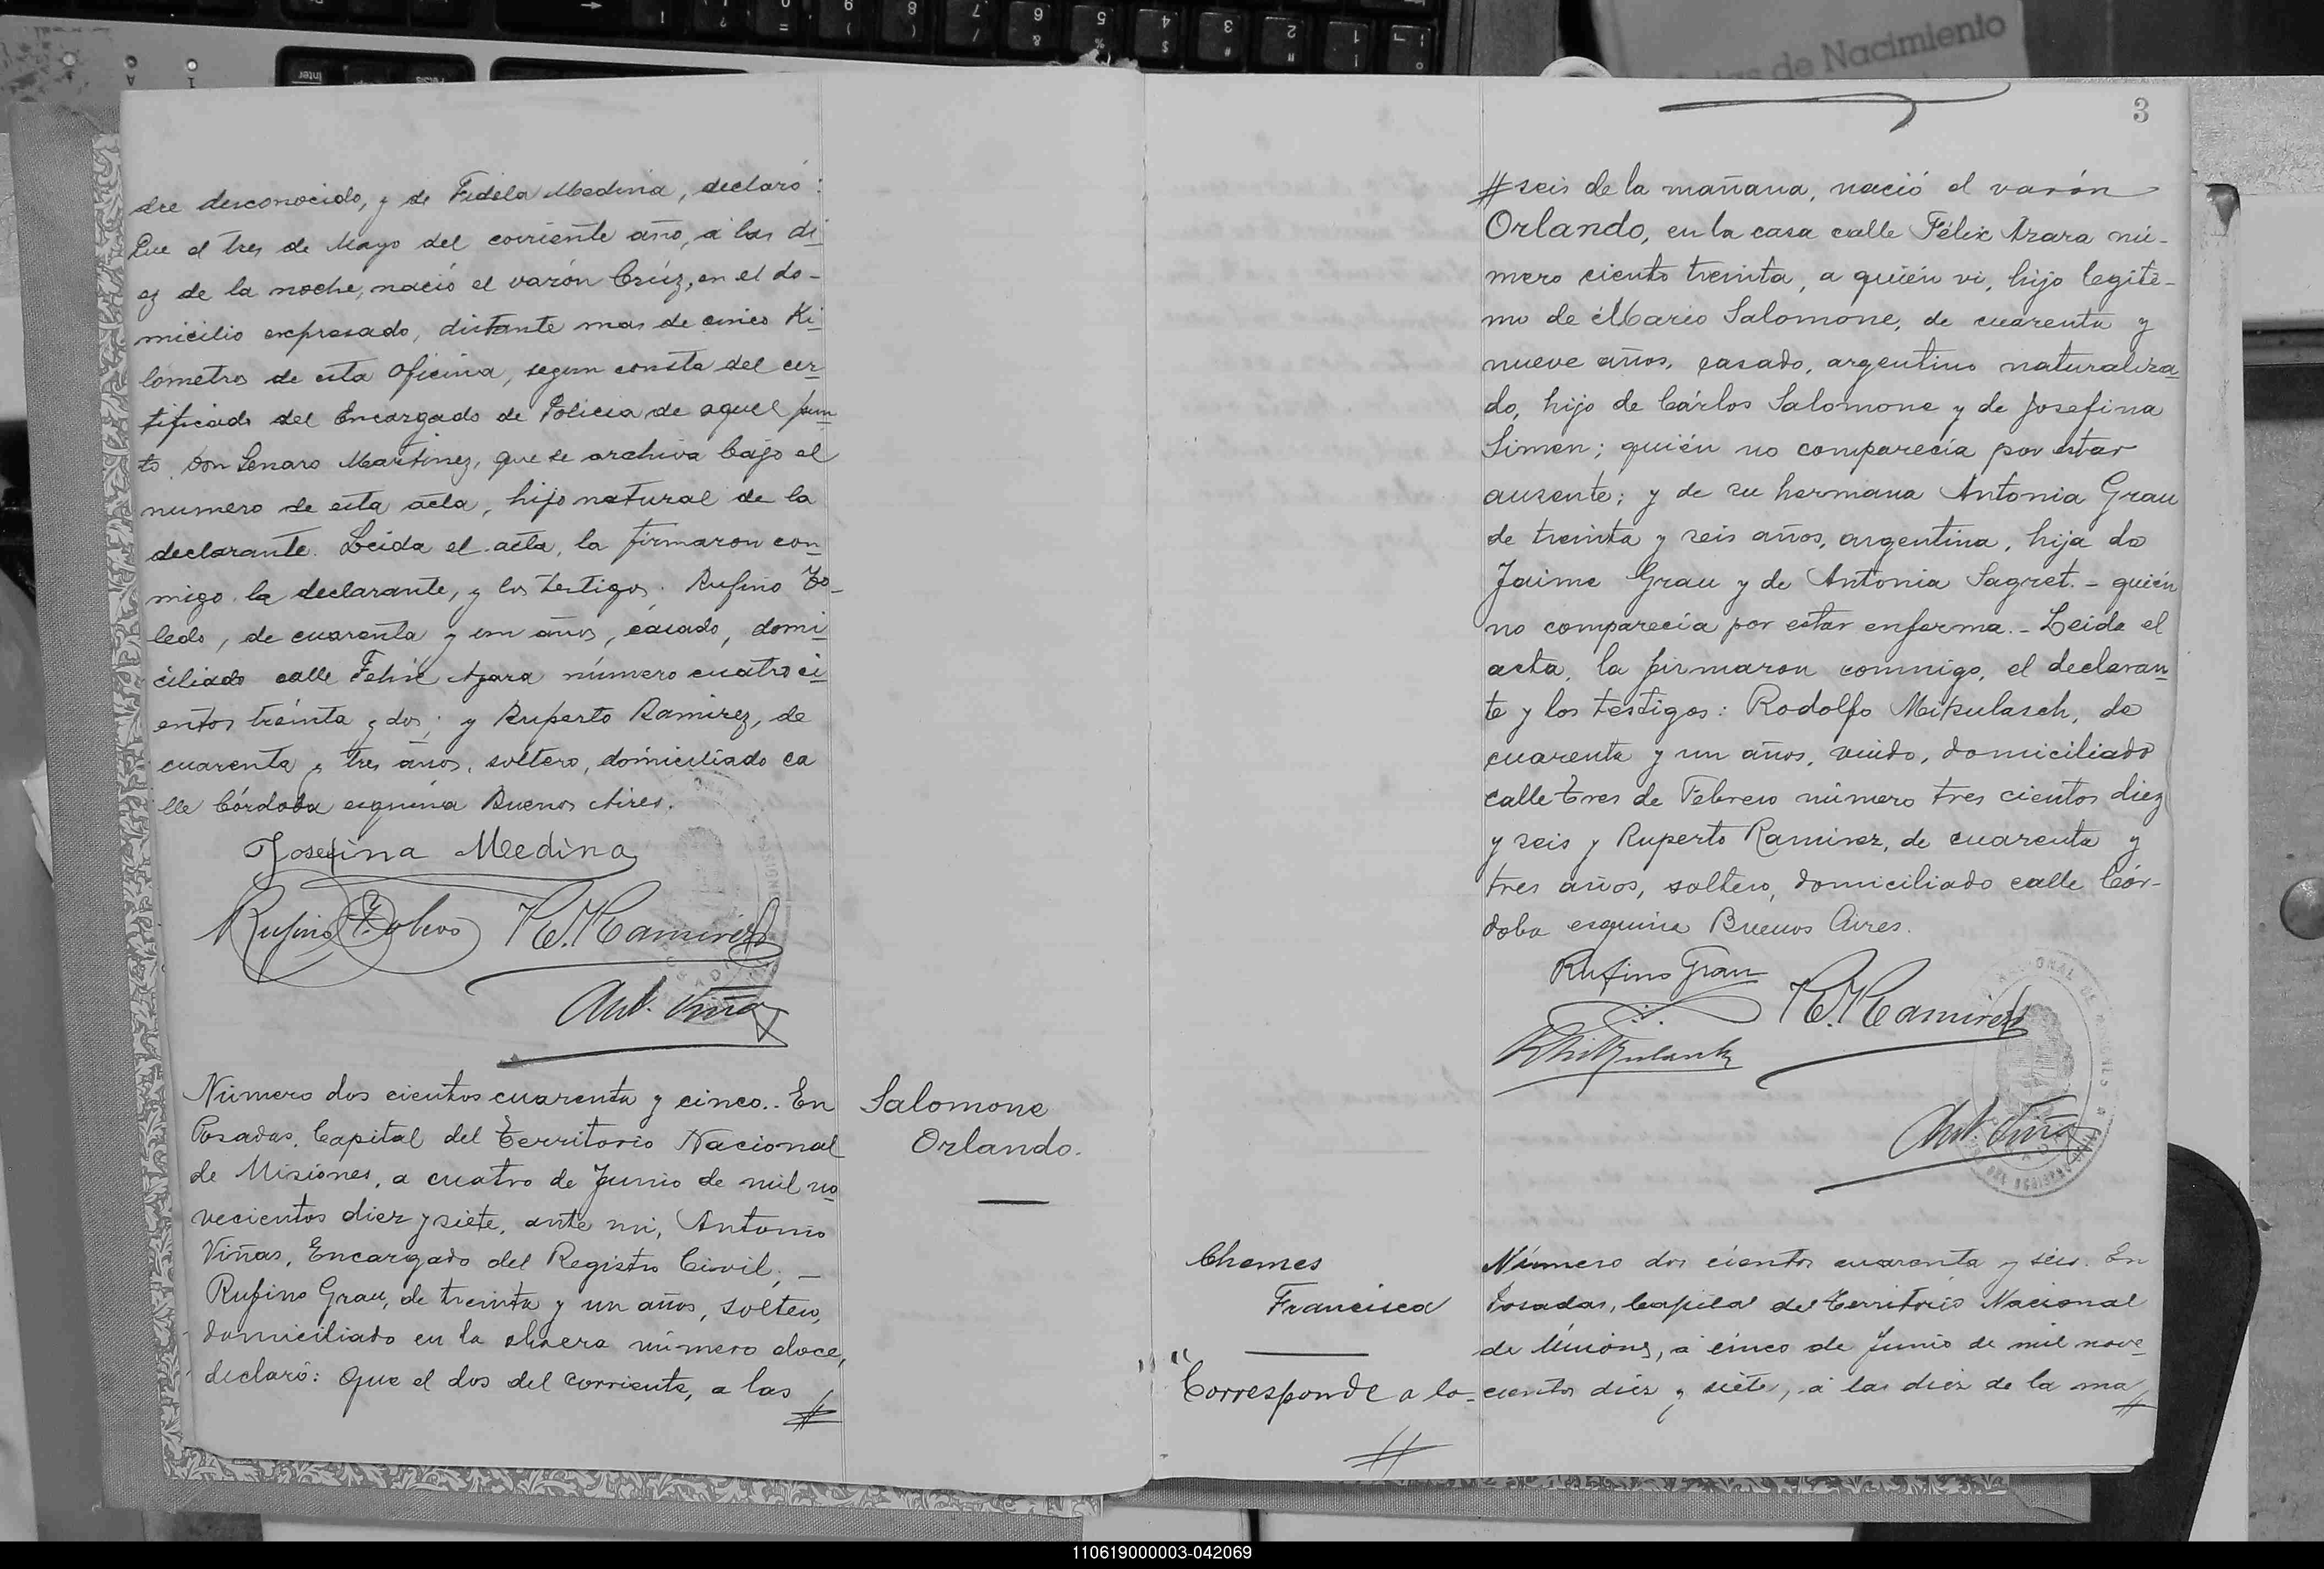 dre desconocido, y de Fidela Medina, declaró:
Que el tres de Mayo del corriente año, a las di
ez de la noche, nació el varón Crúz, en el do-
micilio expresado, distante mas de cinco Ki
lometros de esta Oficina, segun consta del cer
tificado del Encargado de Policia de aquel pun
to Don Genaro Martinez, que se archiva bajo el
numero de esta acta, hijo natural de la
declarante. Leida el acta, la firmaron con
migo la declarante, y los testigos; Rufino To-
ledo, de cuarenta y un años, casado, domi
ciliado calle Felix Azara número cuatro ci
entos treinta y dos; y Ruperto Ramirez, de
cuarenta y tres años, soltero, domiciliado ca
lle Córdoba esquina Buenos Aires.
Josefina Medina
Rufino Toledo R. Ramirez
Ant. Viñas
Número dos cientos cuarenta y cinco.. En
Posadas, Capital del Territorio Nacional
de Misiones, a cuatro de Junio de mil no
vecientos diez y siete, ante mi, Antonio
Viñas, Encargado del Registro Civil; —
Rufino Grau, de treinta y un años, soltero,
domiciliado en la chacra número doce,
declaró: Que el dos del corriente, a las
//
Salomone
Orlando.
3
// seis de la mañana, nació el varón
Orlando, en la casa calle Félix Azara nú-
mero ciento treinta, a quién vi, hijo legiti-
mo de Mario Salomone, de cuarenta y
nueve años, casado, argentino naturaliza
do, hijo de Cárlos Salomone y de Josefina
Simen; quién no comparecía por estar
ausente; y de su hermana Antonia Grau
de treinta y seis años, argentina, hija de
Jaime Grau y de Antonia Sagret. - quién
no comparecía por estar enferma. - Leida el
acta, la firmaron conmigo, el declaran
te y los testigos: Rodolfo Mikulasch, de
cuarenta y un años, viudo, domiciliado
calle tres de Febrero número tres cientos diez
y seis y Ruperto Ramirez, de cuarenta y
tres años, soltero, domiciliado calle Cór-
doba esquina Buenos Aires.
Rufino Grau R. Ramirez
Ant. Viñas
Chemes
Francisca
Corresponde a la
//
Número dos cientos cuarenta y seis. En
Posadas, Capital del Territorio Nacional
de Misiones, a cinco de Junio de mil nove
cientos diez y siete, a las diez de la ma
//
110619000003-042069